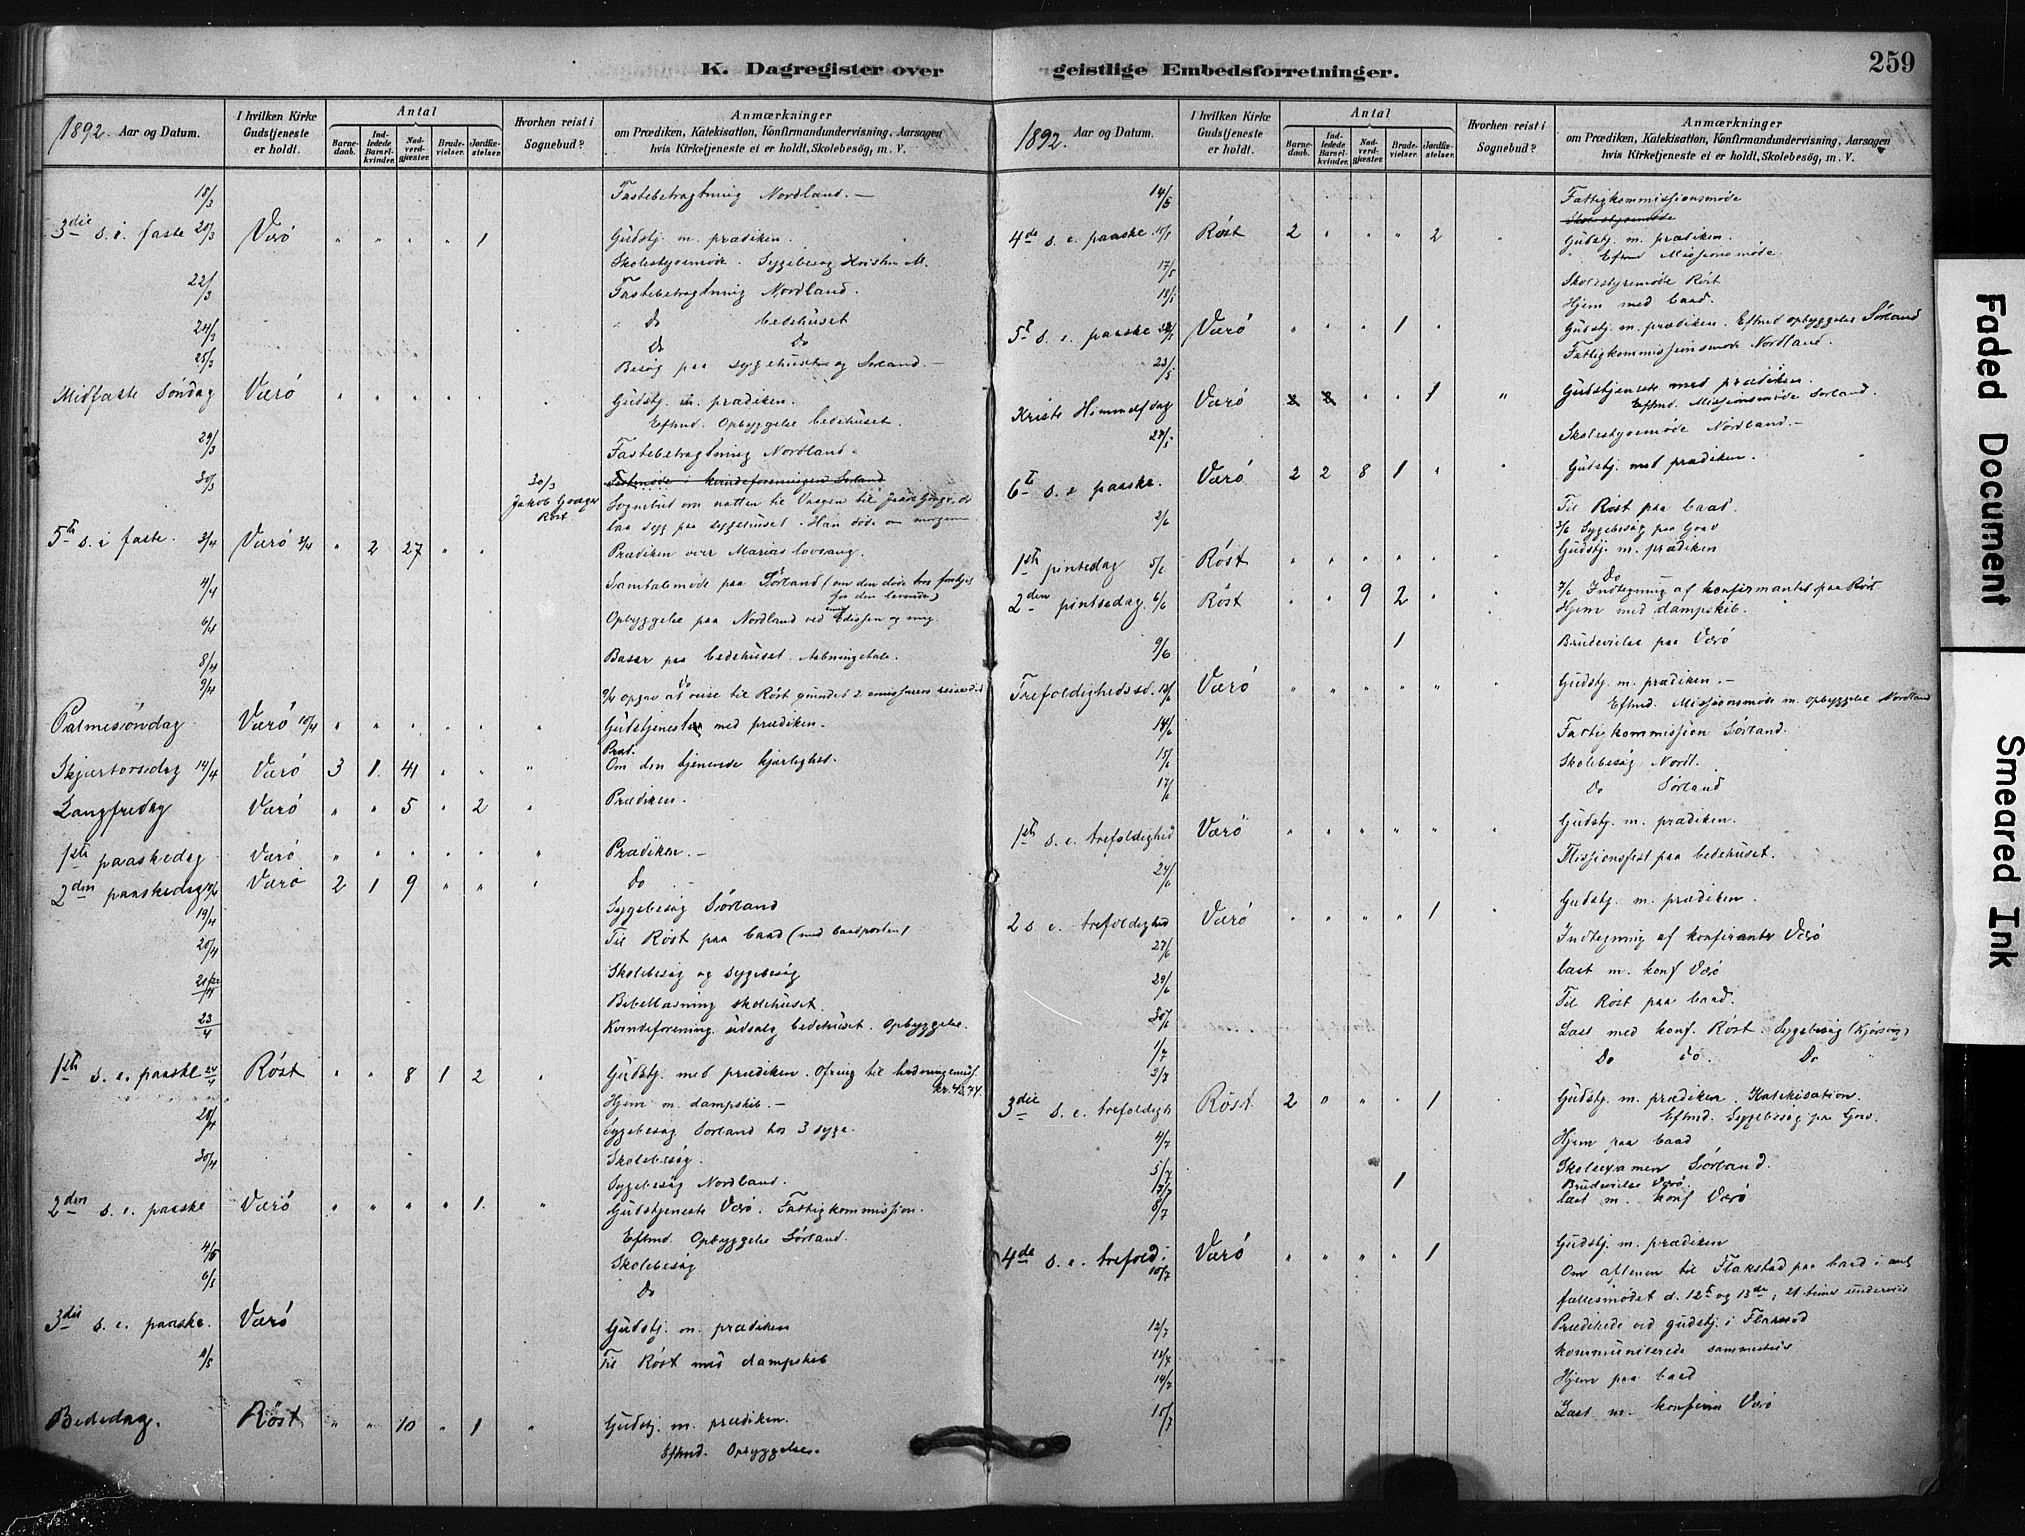 K. Dagregister over geistlige Embedsforretninger.
259
1892. Aar og Datum.
I hvilken Kirke Gudstjeneste er holdt.
Antal
Barnedaab.
Indledede Barselkvinder.
Nadverdgjæster.
Brudevielser.
Jordfæstelser.
Hvorhen reist i Sognebud?
Anmærkninger
om Prædiken, Katekisation, Konfirmandundervisning, Aarsagen
hvis Kirketjeneste ei er holdt, Skolebesög, m. V.
18/3 Fastebetragtning Nordland. —
3die s. i. faste 20/3 Værö " " " " 1 Gudstj. m. prædiken.
Skolestyremøde. Sygebesøg Kristen M.
22/3 Fastebetragtning Nordland.
" Do bedehuset
24/3 Do Do
25/3 Besøg paa sygehuset og Sørland —
Midfaste Søndag Værö " " " " " Gudstj. m. prædiken.
Eftmd. Opbyggelse bedehuset.
29/3 Fastebetragtning Nordland.
30/3 30/3 Jakob Greger Røst i kvindeforeningen Sørland
Sognebud om natten til Vaagen til
laa syg paa sygehuset. Han døde om morgenen
5te s. i faste. 3/4 Værö 3/4 " 2 27 " " Prædiken over Marias lovsang.
4/4 Samtalemøde paa Sørland (om den døde tros forhj
fra den levende)
6/4 Opbyggelse paa Nordland ved Edissen og mig.
8/4 Basar paa bedehuset. Aabningstale.
9/4 9/4 opgav at reise til Röst grundet 2 emissærers reise did
Palmesöndag Værö 10/4 " " " " " " Gudstjeneste med prædiken.
Præd.
Skjærtorsdag 14/4 Værö 3 1. 41 " " " Om den tjenende kjærlighed.
Langfredag Værö " " 5 " 2 " Prædiken.
1ste paaskedag Værö " " " " " " Prædiken. —
2den paaskedag 18/4 Værö 2 1 9 " " " Do
19/4 Sygebesøg Sörland
20/4 Til Röst paa baad (med baadposten)
21/22/4 Skolebesøg og sygebesøg
Bibellæsning skolehuset.
23/4 Kvindeforening. udsalg bedehuset. Opbyggelse.
1ste s. e. paaske 24/4 Röst " " 8 1 2 " Gudstj. med prædiken. Ofring til hedningemiss.
kr. 43,74.
Hjem m. dampskib. —
28/4 Sygebesøg Sørland hos 3 syge.
30/4 Skolebesøg.
Sygebesøg Nordland.
2den s. e. paaske Værö " " " " 1. " Gudstjeneste Værö. Fattigkommission.
Eftmd. Opbyggelse Sörland.
4/5 Skolebesøg
6/5 Do
3die s. e. paaske. Værö Gudstj. m. prædiken
11/5 Til Röst med dampskib
Bededag. Röst " " 10 " 1 " Gudstj. m. prædiken.
Eftmd. Opbyggelse.
1892. Aar og Datum.
I hvilken Kirke Gudstjeneste er holdt.
Antal
Barnedaab.
Indledede Barselkvinder.
Nadverdgjæster.
Brudevielser.
Jordfæstelser.
Hvorhen reist i Sognebud?
Anmærkninger
om Prædiken, Katekisation, Konfirmandundervisning, Aarsagen
hvis Kirketjeneste ei er holdt, Skolebesög, m. V.
14/5 Fattigkommissionsmøde
Skolestyremøde
4de s. e. paaske 15/5 Röst 2 " " " 2 " Gudstj. m. prædiken.
Eftmd Missionsmøde
17/5 Skolestyremøde Röst
18/5 Hjem med baad.
5te s. e. paaske 22/5 Værö " " " 1 " Gudstj. m. prædiken. Eftmd opbyggelse Sörland
23/5 Fattigkommissionsmøde Nordland.
Kristi Himmelfdag Værö 2 2 " " 1 " Gudstjeneste med prædiken.
Eftmd. Missionsmøde Sørland.
27/5 Skolestyremøde Nordland. —
6te s. e paaske. Værö 2 2 8 1 " " Gudstj. med prædiken.
2/6 Til Röst paa baad.
3/6 Sygebesøg paa Grav
1ste pintsedag 5/6 Röst " " " " " " Gudstj. m. prædiken
2den pintsedag 6/6 Röst " " 9 2 " " Do
7/6 Indtegning af konfirmanter paa Röst
Hjem med dampskib.
9/6 1 Brudevielse paa Værö
Trefoldighedssd. 12/6 Værö " " " " " " Gudstj. m. prædiken. —
Eftmd. Missionsmøde m. opbyggelse Nordland
14/6 Fattigkommission Sörland.
15/6 Skolebesøg Nordl.
17/6 Do Sörland
1ste s. e. trefoldighed Værö " " " " " " Gudstj. m. prædiken.
24/6 Missionsfest paa bedehuset.
2 s e. trefoldighed Værö " " " " 1 " Gudstj. m. prædiken.
27/6 Indtegning af konfiranter Værö
29/6 læst m. konf Værö
30/6 Til Röst paa baad.
1/7 Læst med konf. Röst. Sygebesøg
2/7 Do do. Do
3die s. e. trefoldigh Röst 2 " " " 1 " Gudstj. m. prædiken. Katekisation.
Eftmd. Sygebesøg paa Grav.
4/7 Hjem paa baad
5/7 Skoleexamen Sörland.
13/7 1 Brudevielse Værö
8/7 læst m. konf Værö
4de s. e. trefold: 10/7 Værö " " " " 1 Gudstj. m. prædiken
Om aftenen til Flakstad paa baad i anl
fællesmødet d. 12te og 13de, 21 timer underveis
12/7 Prædikede ved gudstj. i Flakstad
13/7 kommunicerede sammesteds
14/7 Hjem paa baad
15/7 Læst m. konfirm Værö
Faded Document
Smeared Ink